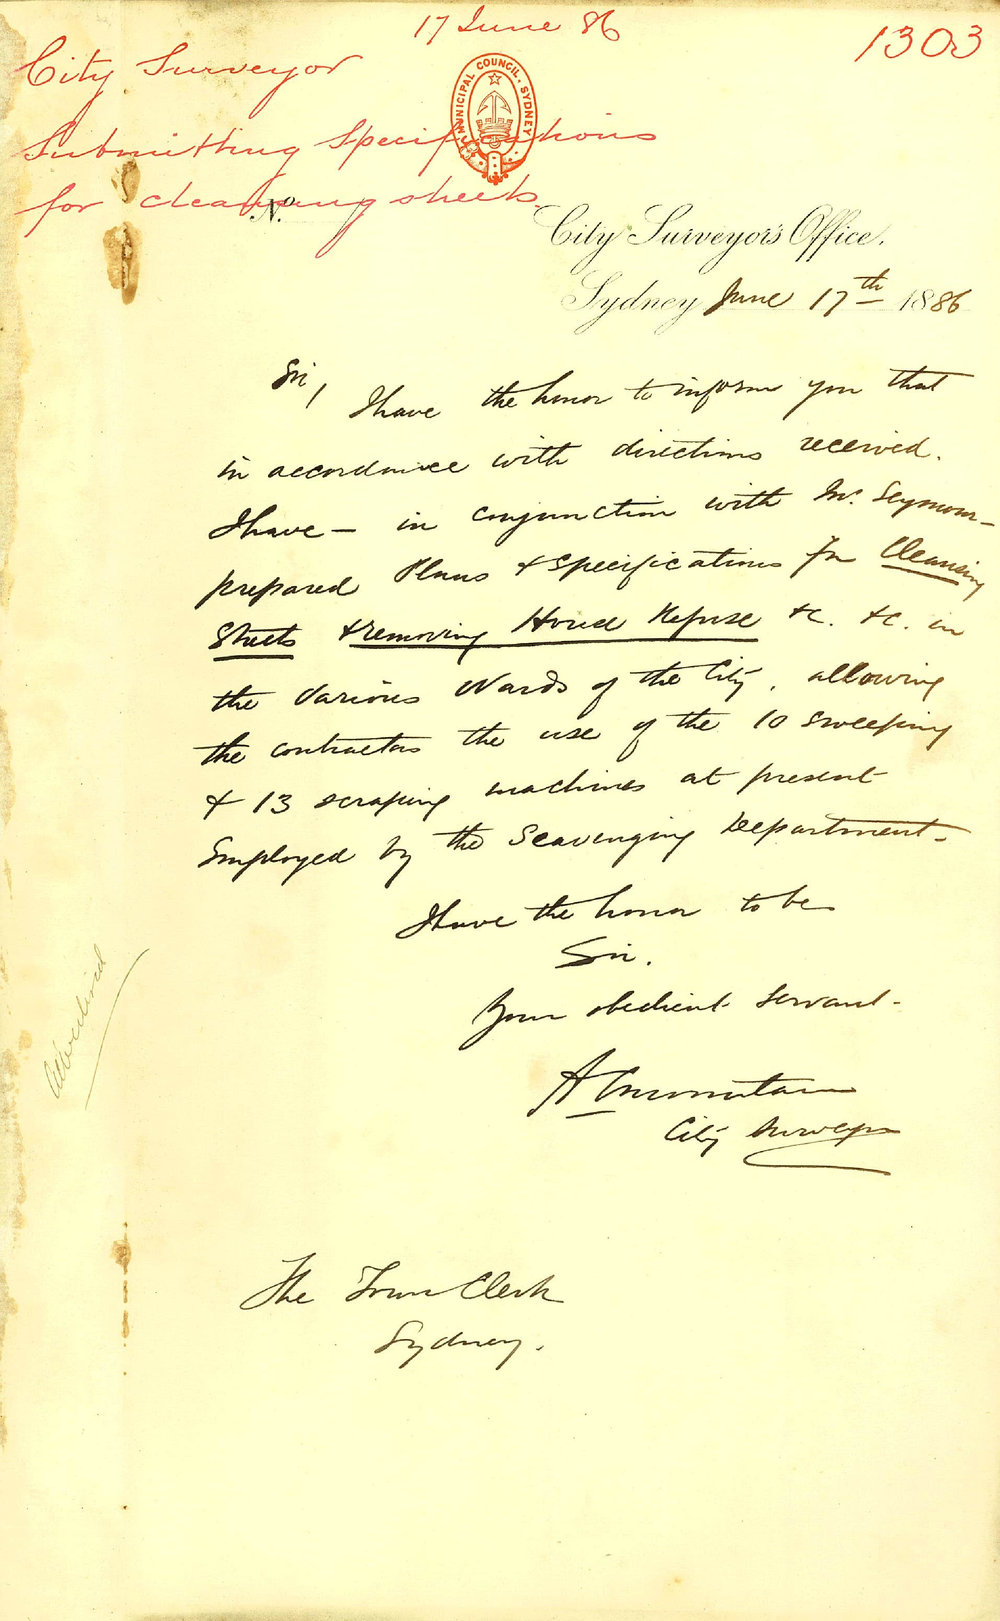 17 June 86
1303
City Surveyor
Submitting Specifications
for cleansing streets
MUNICIPAL COUNCIL. SYDNEY
No.
City Surveyor's Office.
Sydney June 17th 1886
Sir,
I have the honor to inform you that
in accordance with directions received.
I have — in conjunction with Mr. Seymour —
prepared Plans & Specifications for Cleansing
Streets & removing House Refuse &c. &c. in
the various Wards of the City, allowing
the contractors the use of the 10 sweeping
& 13 scraping machines at present
employed by the Scavenging Department.
I have the honor to be
Sir.
Your obedient servant.
A
City Surveyor
The Town Clerk
Sydney.